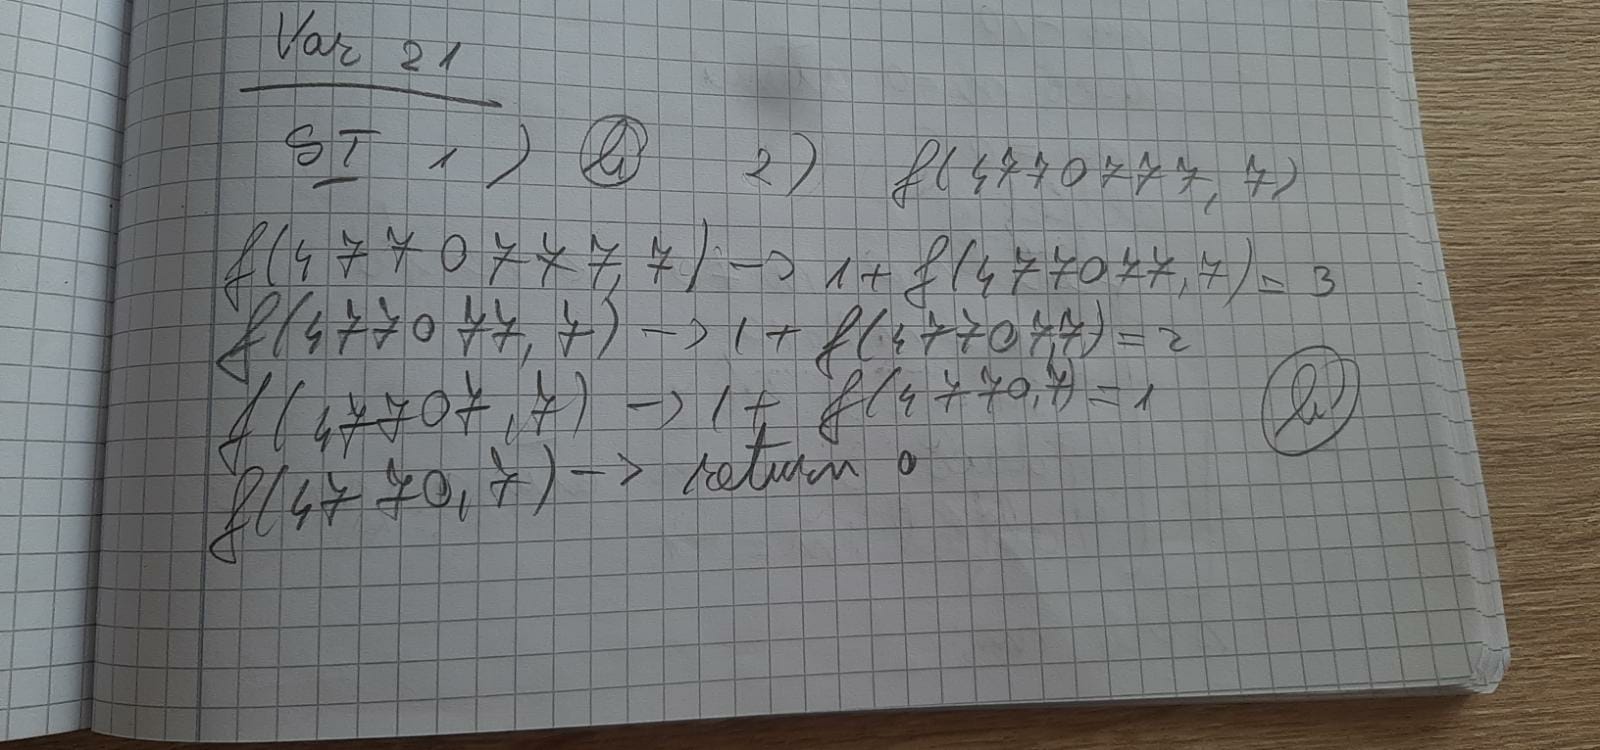 Var 21
SI 1) 2) f(4770777, 7)
f(4770777, 7) -> 1 + f(477077, 7) = 3
f(477077, 7) -> 1 + f(47707, 7) = 2
f(47707, 7) -> 1 + f(4770, 7) = 1
f(4770, 7) -> return 0